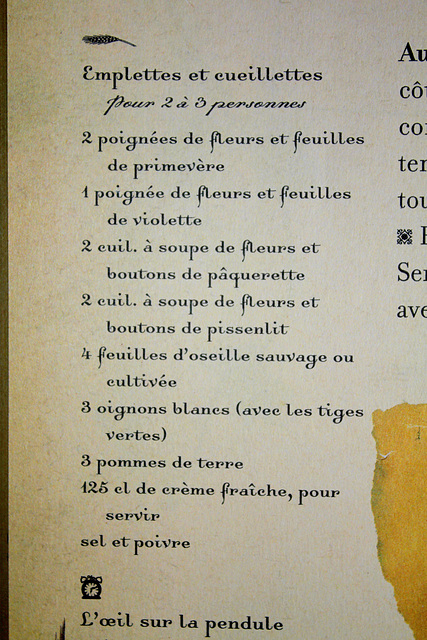 Emplettes et cueillettes
Pour 2 à 3 personnes
2 poignées de fleurs et feuilles
de primevère
1 poignée de fleurs et feuilles
de violette
2 cuil. à soupe de fleurs et
boutons de pâquerette
2 cuil. à soupe de fleurs et
boutons de pissenlit
4 feuilles d'oseille sauvage ou
cultivée
3 oignons blancs (avec les tiges
vertes)
3 pommes de terre
125 cl de crème fraîche, pour
servir
sel et poivre
L'œil sur la pendule